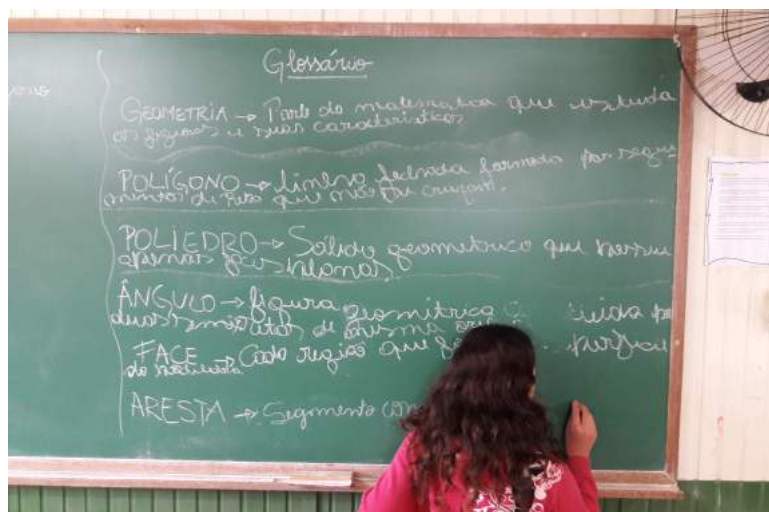 Glossário
GEOMETRIA → Parte da matemática que estuda
as figuras e suas características
POLÍGONO → linha fechada formada por segui
mentos de reta que não se cruzam.
POLIEDRO → Sólido geometrico que possui
apenas faces planas.
ÂNGULO → figura geométrica
duas semirretas de mesma
FACE → Cada região que
do poliedro
ARESTA → Segmento